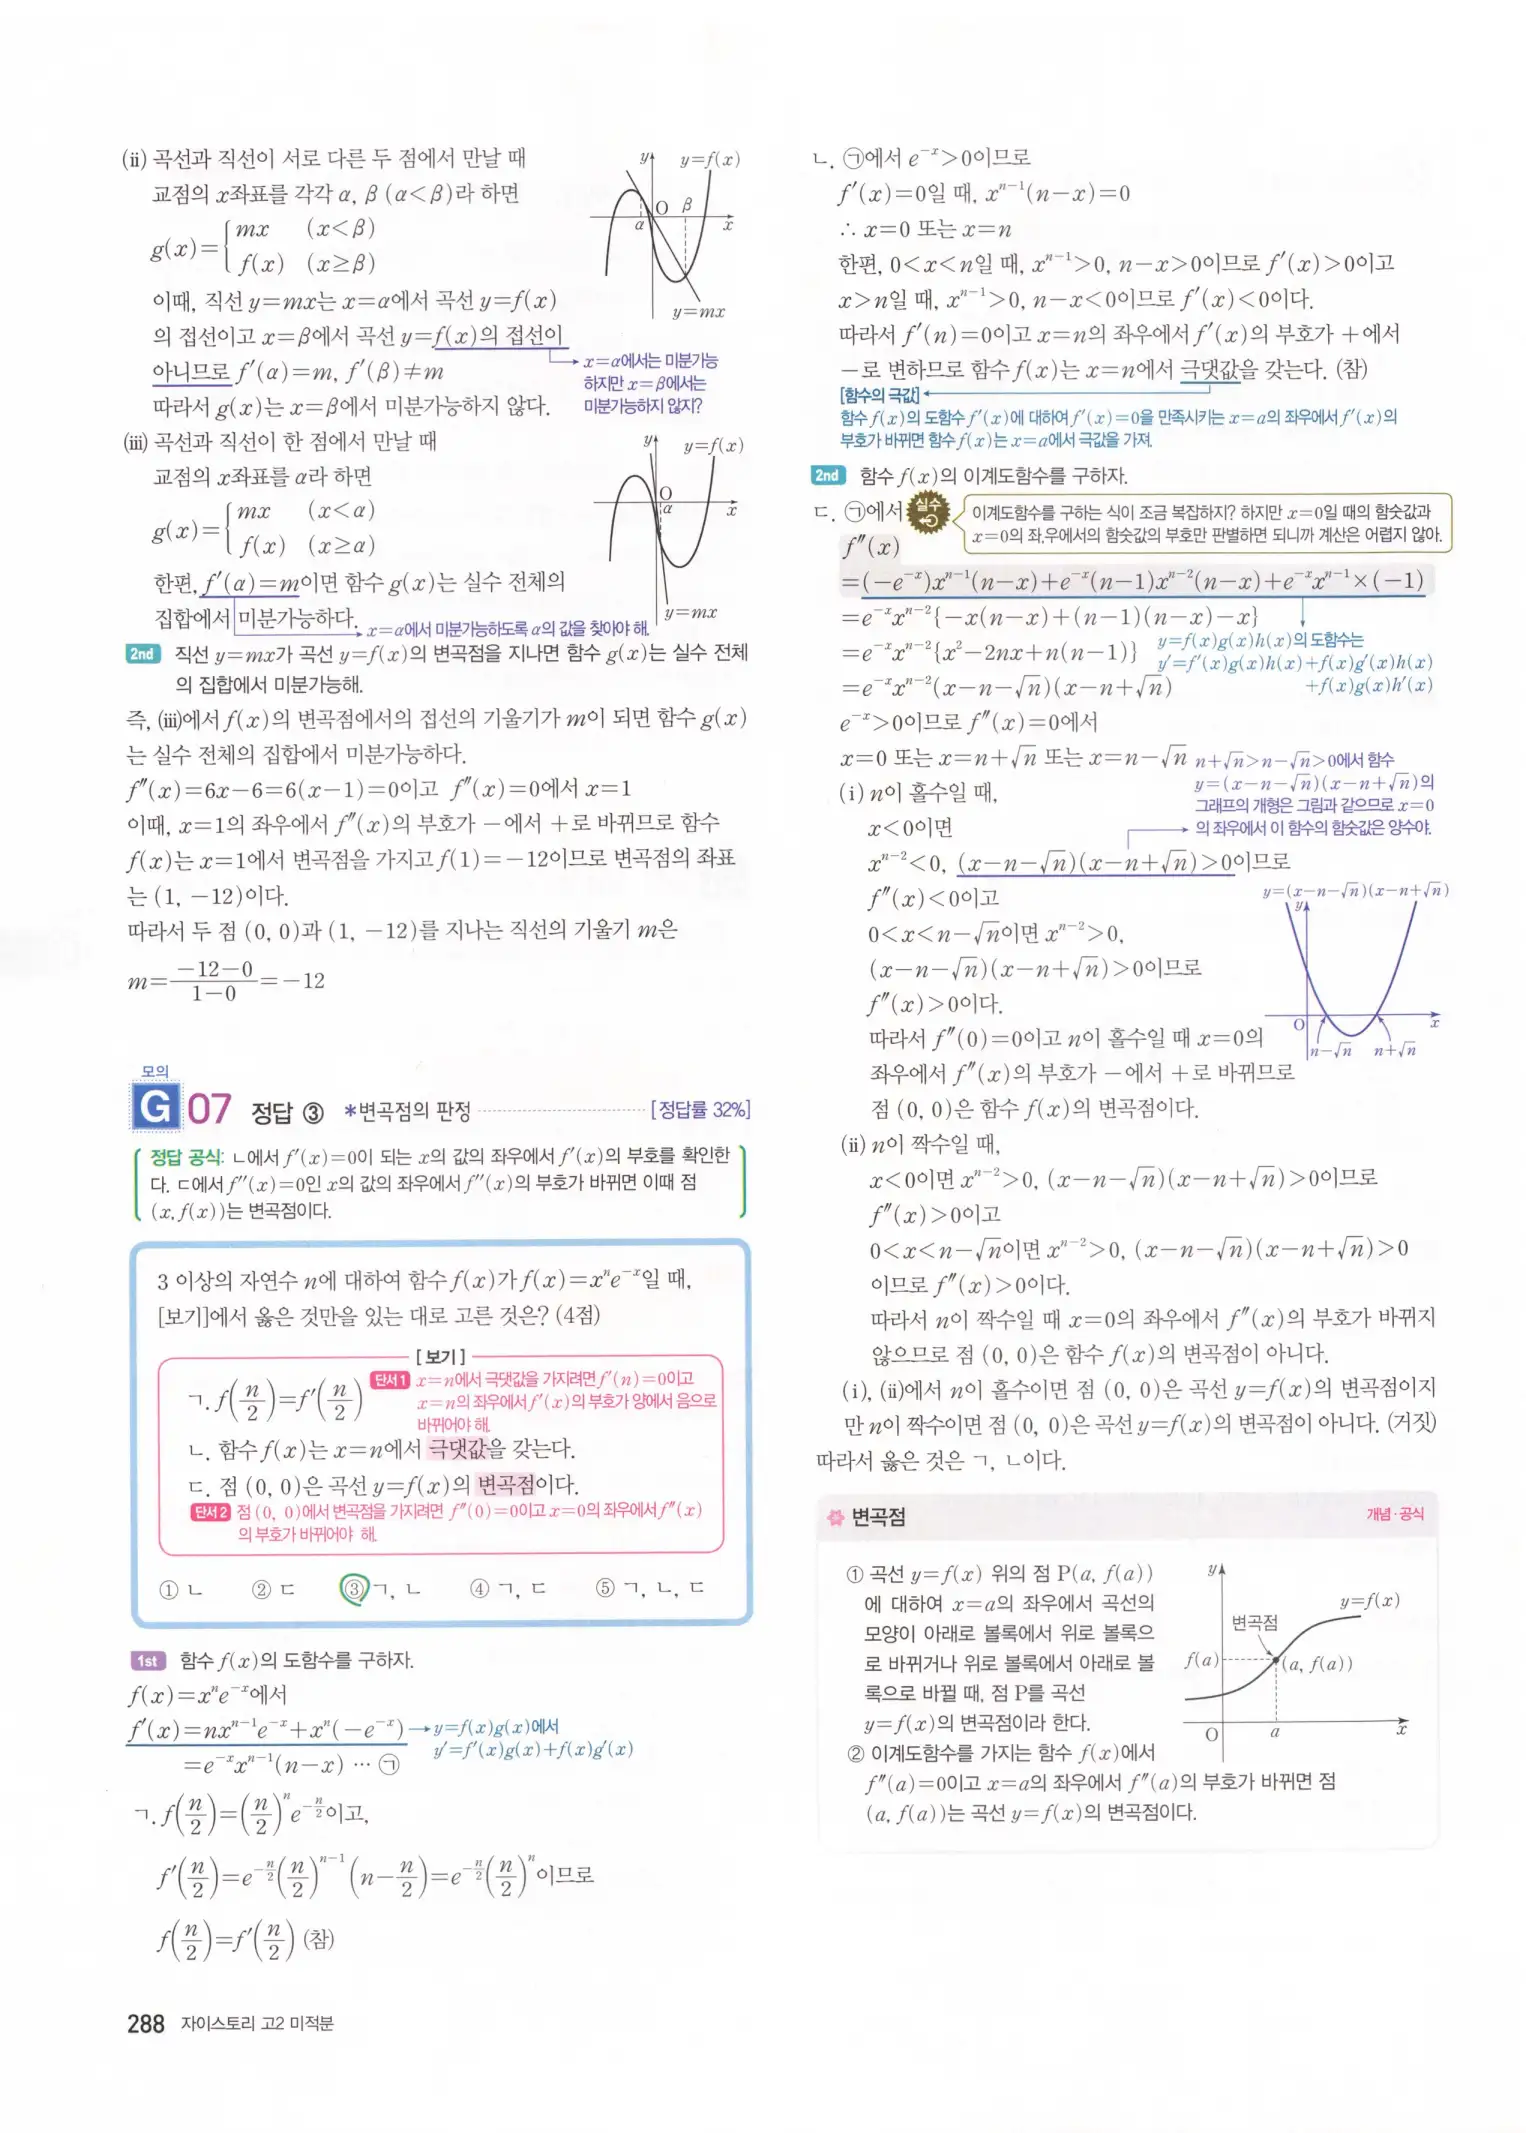 (ii) 곡선과 직선이 서로 다른 두 점에서 만날 때
교점의 x좌표를 각각 α, β (α<β)라 하면
g(x)={ mx (x<β)
f(x) (x≥β)
이때, 직선 y=mx는 x=α에서 곡선 y=f(x)
의 접선이고 x=β에서 곡선 y=f(x)의 접선이
아니므로 f'(α)=m, f'(β)≠m
따라서 g(x)는 x=β에서 미분가능하지 않다.
y y=f(x)
O β
α x
y=mx
x=α에서는 미분가능
하지만 x=β에서는
미분가능하지 않지?
(iii) 곡선과 직선이 한 점에서 만날 때
교점의 x좌표를 α라 하면
g(x)={ mx (x<α)
f(x) (x≥α)
한편, f'(α)=m이면 함수 g(x)는 실수 전체의
집합에서 미분가능하다.
x=α에서 미분가능하도록 α의 값을 찾아야 해.
y y=f(x)
O
α x
y=mx
2nd 직선 y=mx가 곡선 y=f(x)의 변곡점을 지나면 함수 g(x)는 실수 전체
의 집합에서 미분가능해.
즉, (iii)에서 f(x)의 변곡점에서의 접선의 기울기가 m이 되면 함수 g(x)
는 실수 전체의 집합에서 미분가능하다.
f''(x)=6x-6=6(x-1)=0이고 f''(x)=0에서 x=1
이때, x=1의 좌우에서 f''(x)의 부호가 -에서 +로 바뀌므로 함수
f(x)는 x=1에서 변곡점을 가지고 f(1)=-12이므로 변곡점의 좌표
는 (1, -12)이다.
따라서 두 점 (0, 0)과 (1, -12)를 지나는 직선의 기울기 m은
m=(-12-0)/(1-0)=-12
모의
G 07 정답 ③ *변곡점의 판정 [정답률 32%]
정답 공식: ㄴ에서 f'(x)=0이 되는 x의 값의 좌우에서 f'(x)의 부호를 확인한
다. ㄷ에서 f''(x)=0인 x의 값의 좌우에서 f''(x)의 부호가 바뀌면 이때 점
(x, f(x))는 변곡점이다.
3 이상의 자연수 n에 대하여 함수 f(x)가 f(x)=xⁿe⁻ˣ일 때,
[보기]에서 옳은 것만을 있는 대로 고른 것은? (4점)
[보기]
ㄱ. f(n/2)=f'(n/2)
단서1 x=n에서 극댓값을 가지려면 f'(n)=0이고
x=n의 좌우에서 f'(x)의 부호가 양에서 음으로
바뀌어야 해.
ㄴ. 함수 f(x)는 x=n에서 극댓값을 갖는다.
ㄷ. 점 (0, 0)은 곡선 y=f(x)의 변곡점이다.
단서2 점 (0, 0)에서 변곡점을 가지려면 f''(0)=0이고 x=0의 좌우에서 f''(x)
의 부호가 바뀌어야 해.
① ㄴ ② ㄷ ③ ㄱ, ㄴ ④ ㄱ, ㄷ ⑤ ㄱ, ㄴ, ㄷ
1st 함수 f(x)의 도함수를 구하자.
f(x)=xⁿe⁻ˣ에서
f'(x)=nxⁿ⁻¹e⁻ˣ+xⁿ(-e⁻ˣ) → y=f(x)g(x)에서
y'=f'(x)g(x)+f(x)g'(x)
=e⁻ˣxⁿ⁻¹(n-x) ⋯ ㉠
ㄱ. f(n/2)=(n/2)ⁿe^(-n/2)이고,
f'(n/2)=e^(-n/2)(n/2)ⁿ⁻¹(n-n/2)=e^(-n/2)(n/2)ⁿ이므로
f(n/2)=f'(n/2) (참)
288 자이스토리 고2 미적분
ㄴ. ㉠에서 e⁻ˣ>0이므로
f'(x)=0일 때, xⁿ⁻¹(n-x)=0
∴ x=0 또는 x=n
한편, 0<x<n일 때, xⁿ⁻¹>0, n-x>0이므로 f'(x)>0이고
x>n일 때, xⁿ⁻¹>0, n-x<0이므로 f'(x)<0이다.
따라서 f'(n)=0이고 x=n의 좌우에서 f'(x)의 부호가 +에서
-로 변하므로 함수 f(x)는 x=n에서 극댓값을 갖는다. (참)
[함수의 극값]
함수 f(x)의 도함수 f'(x)에 대하여 f'(x)=0을 만족시키는 x=a의 좌우에서 f'(x)의
부호가 바뀌면 함수 f(x)는 x=a에서 극값을 가져.
2nd 함수 f(x)의 이계도함수를 구하자.
ㄷ. ㉠에서
실수
이계도함수를 구하는 식이 조금 복잡하지? 하지만 x=0일 때의 함숫값과
x=0의 좌,우에서의 함숫값의 부호만 판별하면 되니까 계산은 어렵지 않아.
f''(x)
=(-e⁻ˣ)xⁿ⁻¹(n-x)+e⁻ˣ(n-1)xⁿ⁻²(n-x)+e⁻ˣxⁿ⁻¹×(-1)
=e⁻ˣxⁿ⁻²{-x(n-x)+(n-1)(n-x)-x}
=e⁻ˣxⁿ⁻²{x²-2nx+n(n-1)}
=e⁻ˣxⁿ⁻²(x-n-√n)(x-n+√n)
y=f(x)g(x)h(x)의 도함수는
y'=f'(x)g(x)h(x)+f(x)g'(x)h(x)
+f(x)g(x)h'(x)
e⁻ˣ>0이므로 f''(x)=0에서
x=0 또는 x=n+√n 또는 x=n-√n
n+√n>n-√n>0에서 함수
y=(x-n-√n)(x-n+√n)의
그래프의 개형은 그림과 같으므로 x=0
의 좌우에서 이 함수의 함숫값은 양수야.
(i) n이 홀수일 때,
x<0이면
xⁿ⁻²<0, (x-n-√n)(x-n+√n)>0이므로
f''(x)<0이고
0<x<n-√n이면 xⁿ⁻²>0,
(x-n-√n)(x-n+√n)>0이므로
f''(x)>0이다.
따라서 f''(0)=0이고 n이 홀수일 때 x=0의
좌우에서 f''(x)의 부호가 -에서 +로 바뀌므로
점 (0, 0)은 함수 f(x)의 변곡점이다.
y=(x-n-√n)(x-n+√n)
y
O x
n-√n n+√n
(ii) n이 짝수일 때,
x<0이면 xⁿ⁻²>0, (x-n-√n)(x-n+√n)>0이므로
f''(x)>0이고
0<x<n-√n이면 xⁿ⁻²>0, (x-n-√n)(x-n+√n)>0
이므로 f''(x)>0이다.
따라서 n이 짝수일 때 x=0의 좌우에서 f''(x)의 부호가 바뀌지
않으므로 점 (0, 0)은 함수 f(x)의 변곡점이 아니다.
(i), (ii)에서 n이 홀수이면 점 (0, 0)은 곡선 y=f(x)의 변곡점이지
만 n이 짝수이면 점 (0, 0)은 곡선 y=f(x)의 변곡점이 아니다. (거짓)
따라서 옳은 것은 ㄱ, ㄴ이다.
변곡점 개념·공식
① 곡선 y=f(x) 위의 점 P(a, f(a))
에 대하여 x=a의 좌우에서 곡선의
모양이 아래로 볼록에서 위로 볼록으
로 바뀌거나 위로 볼록에서 아래로 볼
록으로 바뀔 때, 점 P를 곡선
y=f(x)의 변곡점이라 한다.
② 이계도함수를 가지는 함수 f(x)에서
f''(a)=0이고 x=a의 좌우에서 f''(a)의 부호가 바뀌면 점
(a, f(a))는 곡선 y=f(x)의 변곡점이다.
y
y=f(x)
변곡점
f(a) (a, f(a))
O a x